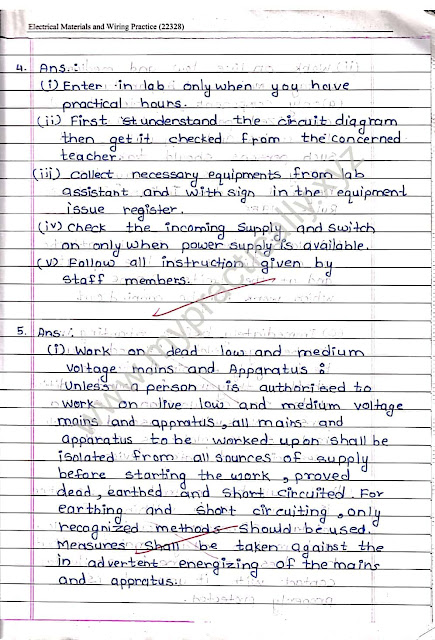 Electrical Materials and Wiring Practice (22328)
4. Ans.:
(i) Enter in lab only when you have
practical hours.
(ii) First understand the circuit diagram
then get it checked from the concerned
teacher.
(iii) collect necessary equipments from lab
assistant and with sign in the equipment
issue register.
(iv) Check the incoming supply and switch
on only when power supply is available.
(v) Follow all instruction given by
staff members.
5. Ans.:
(i) Work on dead low and medium
voltage mains and Apparatus :
Unless a person is authorised to
work on live low and medium voltage
mains and appratus, all mains and
apparatus to be worked upon shall be
isolated from all sources of supply
before starting the work, proved
dead, earthed and short circuited. For
earthing and short circuiting, only
recognized methods should be used.
Measures shall be taken against the
in advertent energizing of the mains
and appratus.
www.mypractically.xyz